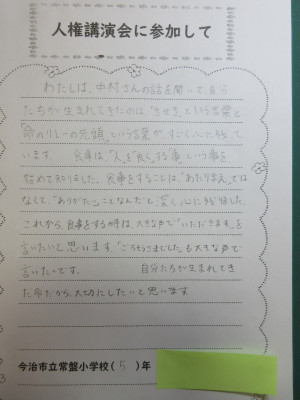 人権講演会に参加して
わたしは、中村さんの話を聞いて、自分
たちが生まれてきたのは「きせき」という言葉と
「命のリレーの先頭」という言葉が、すごく心に残って
います。 食事は、「人」を「良」くする「事」という事を
初めて知りました。食事をすることは、「あたりまえ」では
なくて、「ありがたい」ことなんだと深く心に残りました。
これから、食事をする時は、大きな声で「いただきます」を
言いたいと思います。「ごちそうさまでした」も大きな声で
言いたいです。 自分たちが生まれてき
た命だから、大切にしたいと思います。
今治市立常盤小学校(5)年